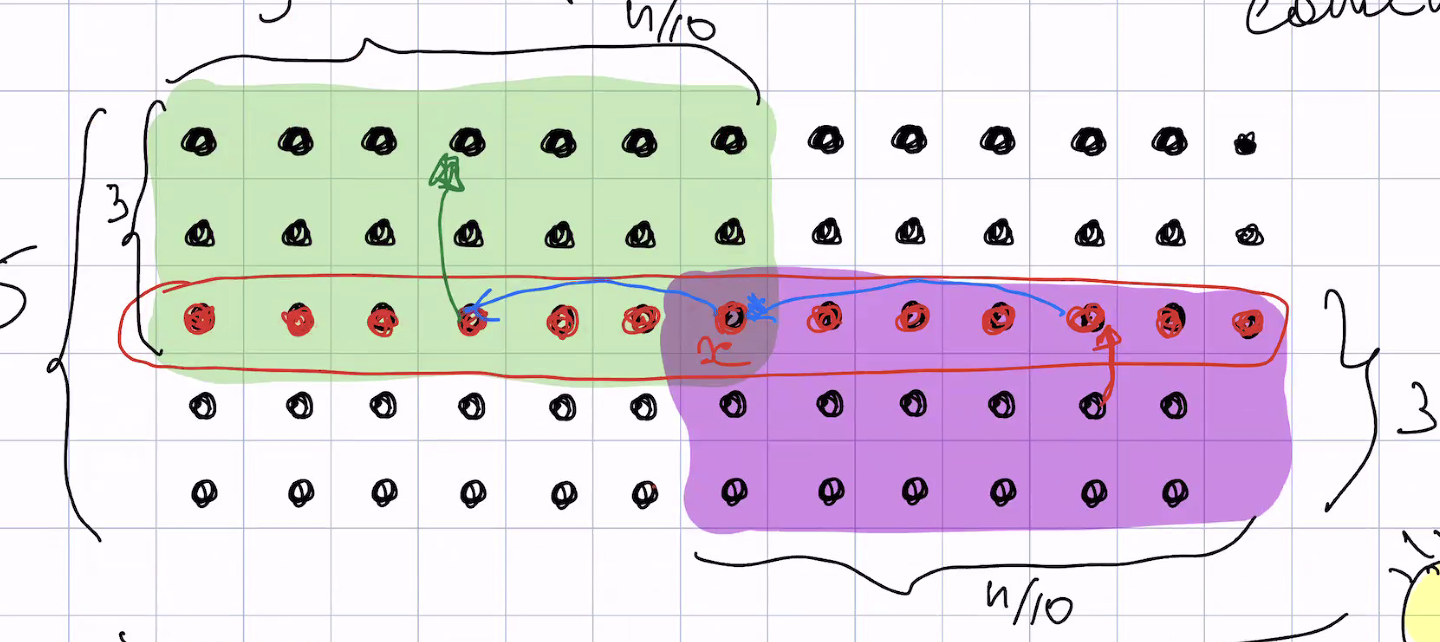 n/10
3
5
x
3
n/10